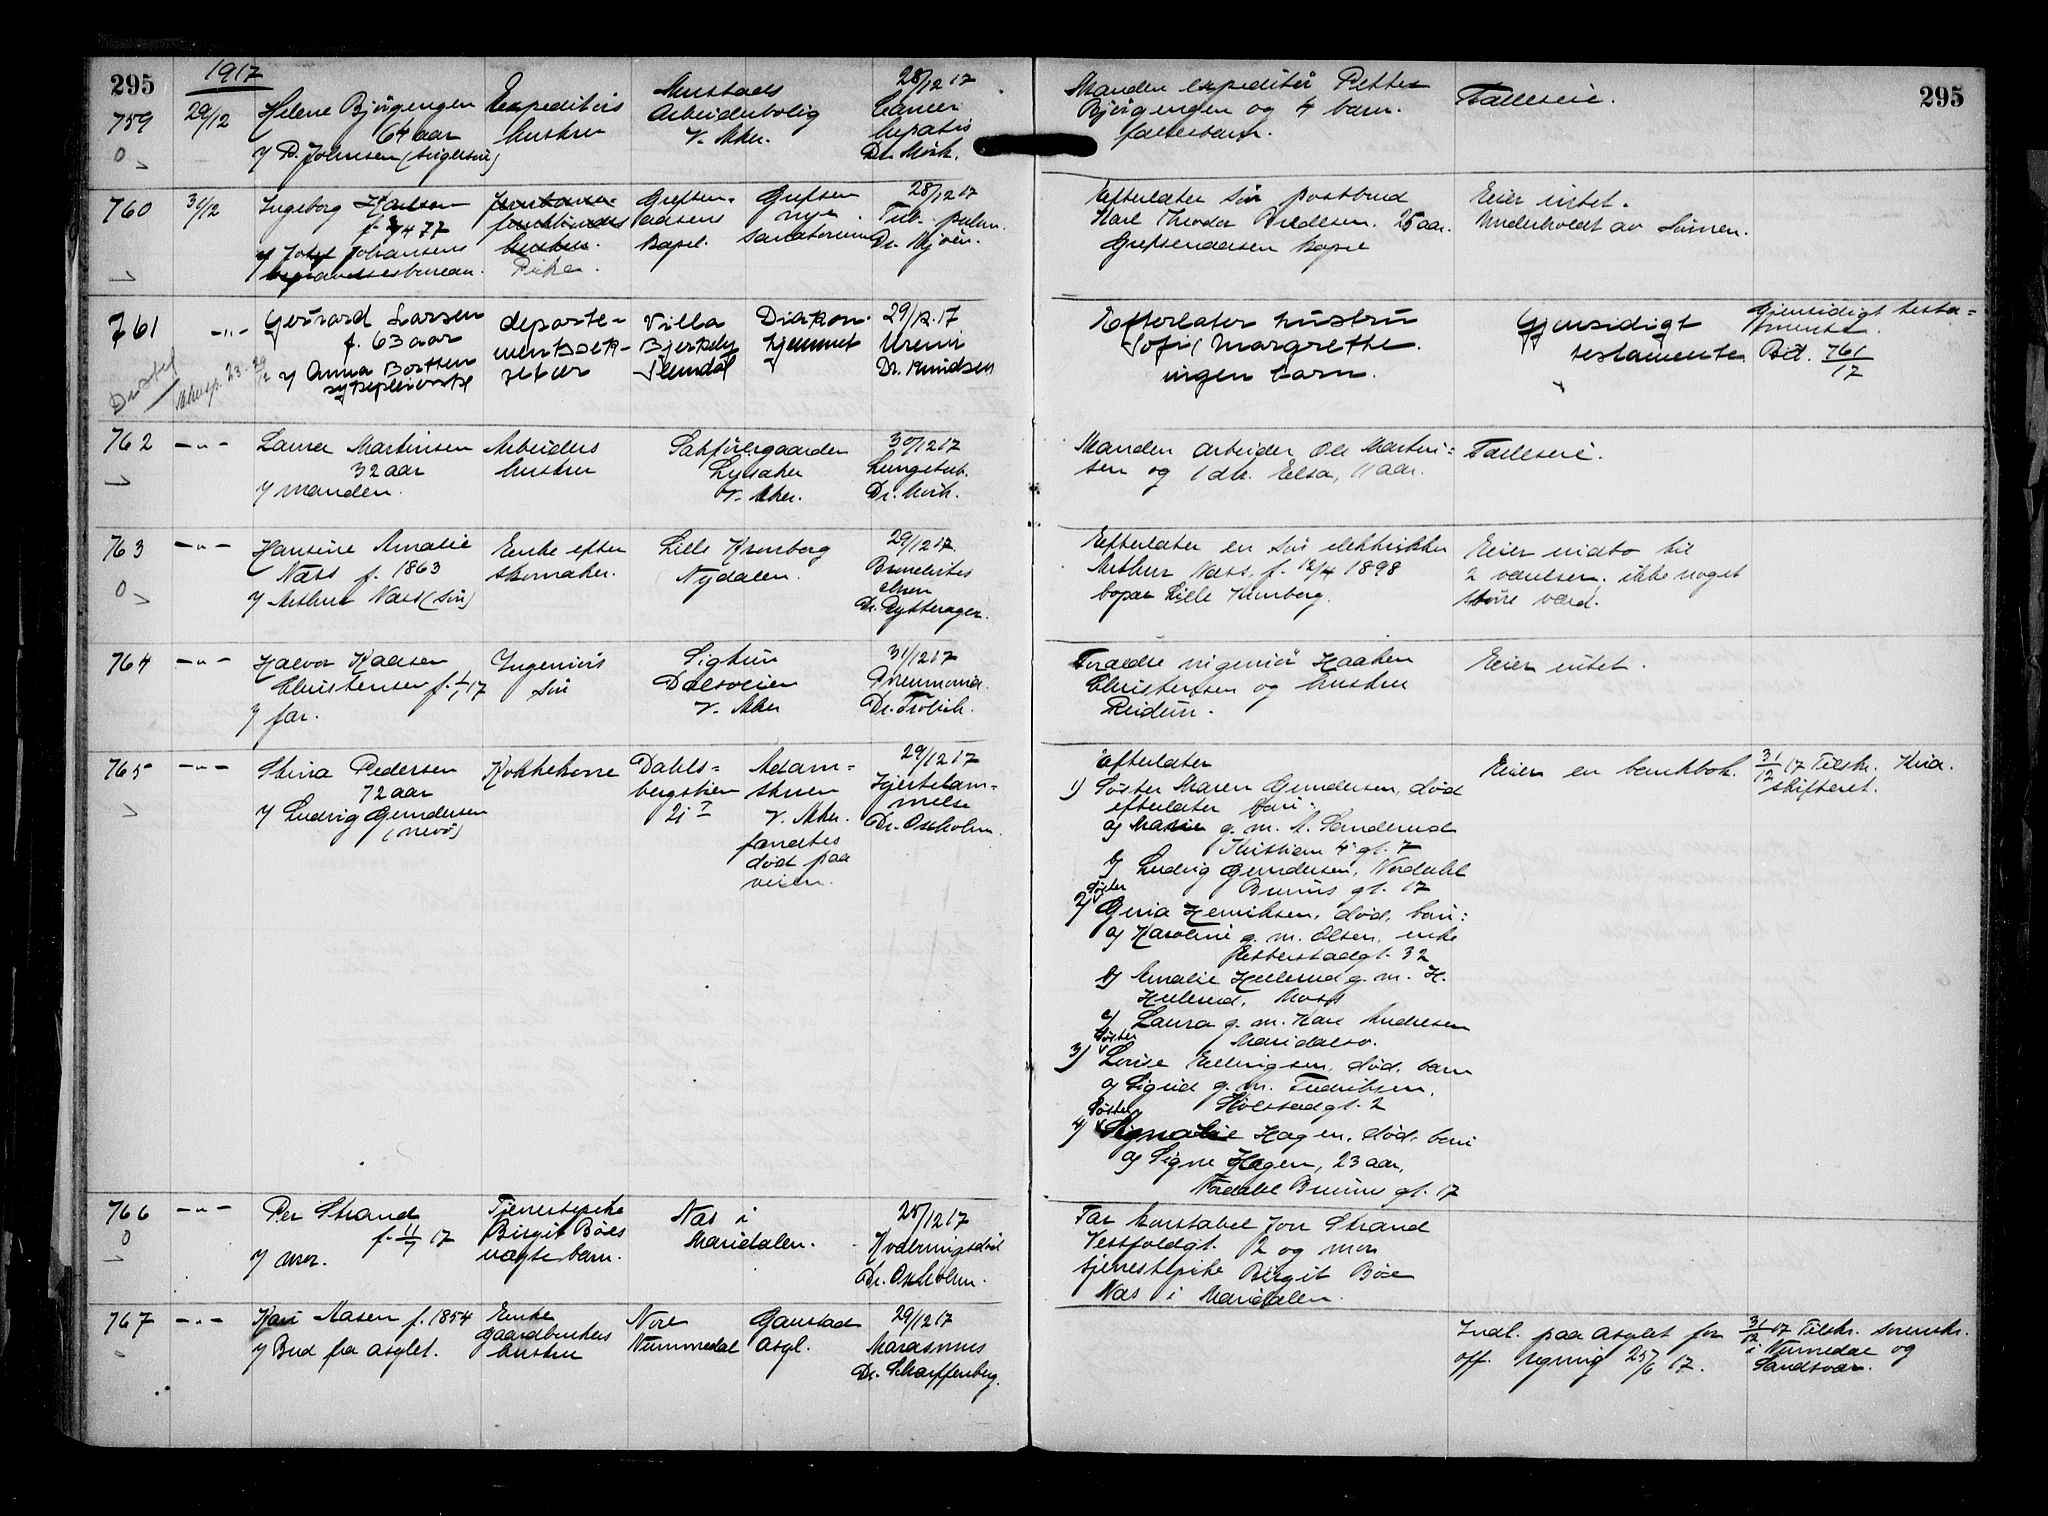 295
1917
295
759
29/12
Helene Bjørgengen
64 aar
v/ P. Johnsen (svigersøn)
Expeditørs
hustru
Mustads
Arbeiderbolig
V. Aker.
28/12 17
Cancer
hepatis
Dr. Mørk.
Manden expeditør Petter
Bjørgengen og 4 barn.
fællesbarn.
Fælleseie.
760
31/12
Ingeborg Karlson
f. 1477
v/ Josef Johansens
begravelsesbureau.
hustru.
Pike.
Grefsen-
aasens
Kapel.
Grefsen
nye
sanatorium
28/12 17
Tub. pulm.
Dr. Mjøen.
Efterlater søn postbud
Karl Theodor 25 aar.
Grefsenaasen kapel
Eier intet.
Underholdt av sønnen.
761
-"-
Gerhard Larsen
f. 63 aar
v/ Anna Bortten
sykepleierske
departe-
mentssek-
retær
Villa
Bjerkely
Slemdal
Diakon-
hjemmet
29/12. 17
Uremi
Dr. Knudsen
Efterlater hustru
Sofie Margrethe.
ingen barn.
Gjensidigt
testamente
Gjensidigt testa-
mente.
Bil. 761/17
762
-"-
Laura Martinsen
32 aar
v/ manden.
Arbeiders
hustru
Sakførergaarden
Lysaker
V. Aker.
30/12 17
Lungetub.
Dr. Mørk.
Manden arbeider Ole Martin-
sen og 1 dtr. Elsa, 11 aar.
Fælleseie.
763
-"-
Hansine Amalie
Næss f. 1863
v/ Arthur Næss (søn)
Enke efter
skomaker.
Lille Kronborg
Nydalen.
29/12 17.
Dr. Rytterager.
Efterlater en søn elektriker
Arthur Næss, f. 12/4 1898
bopæl Lille Kronborg.
Eier indbo til
2 værelser, ikke noget
større værd.
764
-"-
Halvor Kaasen
Christensen f. 1/1 17
v/ far.
Ingeniørs
søn
Sigtun
Dalsveien
V. Aker
31/12 17
Pneumonia.
Dr. Frølich.
Foreldre ingeniør Haaken
Christensen og hustru
Reidun.
Eier intet.
765
-"-
Stina Pedersen
72 aar
v/ Ludvig Gundersen
(nevø)
Kokkekone
Dahls-
bergstien
21
Adam-
stuen
V. Aker.
fandtes
død paa
veien.
29/12 17
Hjertelam-
melse
Dr. Oxholm.
Efterlater
1) Søster Maren Gundersen, død
efterlater barn:
a) Marie g. m. A. Sanderud
Kristian 4 gt. 7
b) Ludvig Gundersen, Nordahl
Bruns gt. 17
Søster
2) Gina Henriksen, død, barn:
a) Karoline g. m. Olsen, enke
Heslerstadgt. 32
b) Amalie Hellerud g. m. H.
Hellerud, Moss
c) Laura g. m. Karl Andresen
Maridalsv.
Søster
3) Lovise Ellingsen, død, barn
a) Sigrid g. m. Fredriksen,
Stolstadgt. 2
Søster
4) Signalie Hagen, død, barn
a) Signe Hagen, 23 aar,
Nordahl Bruns gt. 17
Eier en bankbok.
31/12 17 Tilskr. Kria.
skifteret.
766
-"-
Per Strand
f. 11/7 17
v/ mor.
Tjenestepike
Birgit Böes
uægte barn.
Nas i
Maridalen.
25/12 17
Kvælningsdød
Dr. Oxholm.
Far konstabel Jon Strand
Vestfoldgt. 2 og mor
tjenestepike Birgit Böe
Nas i Maridalen.
767
-"-
Kari Aasen f. 1854
v/ Bud fra asylet.
Enke
gaardbrukers
hustru
Nore
Nummedal
Gaustad
Asyl.
29/12 17
Marasmus
Dr. Scharffenberg.
Indl. paa Asylet for
off. regning 25/6 17.
31/12 17 Tilskr. sorenskr.
i Numedal og
Sandsvær.